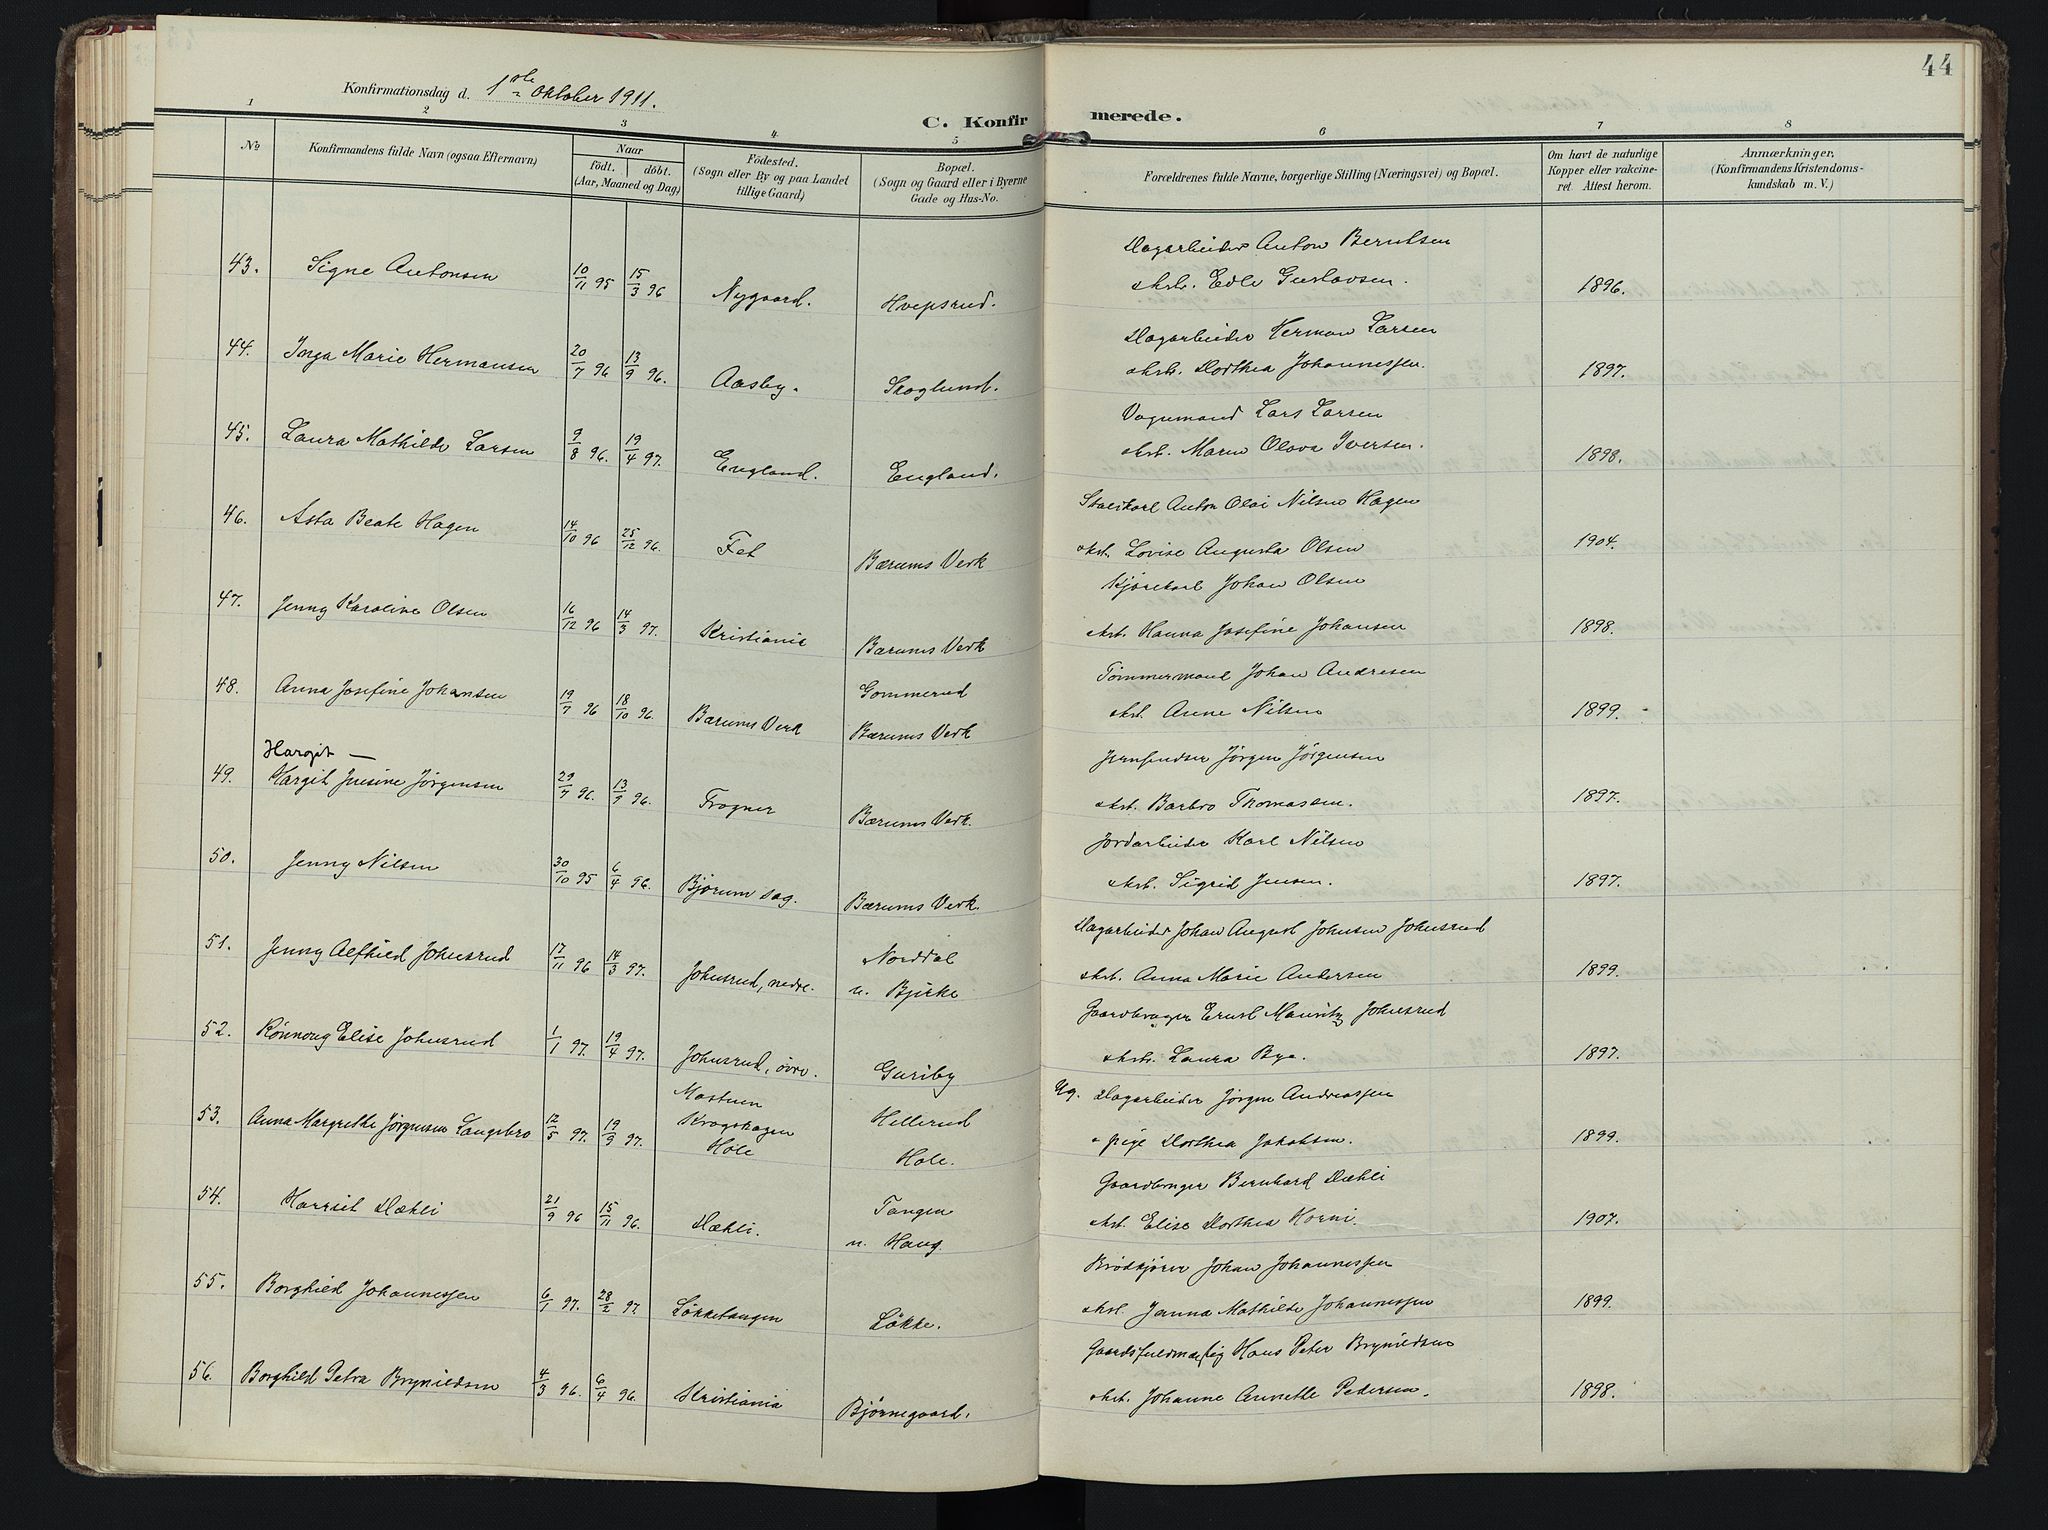 44
Konfirmationsdag d. 1ste Oktober 1911.
C. Konfirmerede.
1 2 3 4 5 6 7 8
No
Konfirmandens fulde Navn (ogsaa Efternavn)
Naar
födt. döbt.
(Aar, Maaned og Dag)
Födested.
(Sogn eller By og paa Landet
tillige Gaard)
Bopæl.
(Sogn og Gaard eller i Byerne
Gade og Hus-No.
Forældrenes fulde Navne, borgerlige Stilling (Næringsvei) og Bopæl.
Om havt de naturlige
Kopper eller vakcine-
ret Attest herom.
Anmærkninger.
(Konfirmandens Kristendoms-
kundskab m. V.)
Dagarbeider Anton Berntsen
43. Signe Antonsen 10/11 95 15/3 96 Nygaard. Hvepsrud. Edle Gustavsen. 1896.
Dagarbeider Herman Larsen
44. Inga Marie Hermansen 20/7 96 13/9 96. Aasby. Skoglund. Dorthea Johannessen. 1897.
Vognmand Lars Larsen
45. Laura Mathilde Larsen 9/8 96. 19/4 97. England. England. Maren Olava Iversen. 1898.
Anton Olai Nilsen Hagen
46. Asta Beate Hagen 14/10 96 25/12 96. Fet Bærums Verk Lovise Augusta Olsen 1904.
Kjørekarl Johan Olsen
47. Jenny Karoline Olsen 16/12 96 14/3 97. Kristiania Bærums Verk Hanna Josefine Johansen 1898.
Tømmermand Johan Andresen
48. Anna Josefine Johansen 19/7 96 18/10 96. Bærums Verk Gommerud
Bærums Verk Anne Nilsen 1899.
Hargit —
Jørgen Jørgensen
49. Hargit Jensine Jørgensen 29/7 96. 13/9 96. Frogner Bærums Verk. Barbro Thomassen. 1897.
Jordarbeider Karl Nilsen
50. Jenny Nilsen 30/10 95 6/4 96. Bjørum sag. Bærums Verk. Sigrid Jensen. 1897.
Dagarbeider Johan August Johnsen Johnsrud
51. Jenny Alfhild Johnsrud 17/11 96 14/3 97. Johnsrud, nedre. Norddal
u. Bjerke Anna Marie Andersen 1899.
Gaardbruger Ernst Mauritz Johnsrud
52. Rønnoug Elise Johnsrud 1/1 97. 19/4 97. Johnsrud, øvre. Guriby Laura Bye. 1897.
Ug. Dagarbeider Jørgen Andreassen
53. Anna Margrethe Jørgensen Langebro 12/5 97. 19/9 97. Krogskogen
Hole Hellerud
Hole. pige Dorthea Jakobsen. 1899.
Gaardbruger Bernhard Dæhli
54. Harriet Dæhli 21/9 96 15/11 96. Dæhli. Tangen
u. Haug. Elise Dorthea Horni. 1907.
Brødkjører Johan Johannessen
55. Borghild Johannessen 6/1 97. 28/2 97. Løkketangen Løkke. Janna Mathilde Johannessen 1899.
Gaardsfuldmægtig Hans Peter Brynildsen
56. Borghild Petra Brynildsen 4/3 96. 6/4 96. Kristiania Bjørnegaard. Johanne Annette Pedersen. 1898.